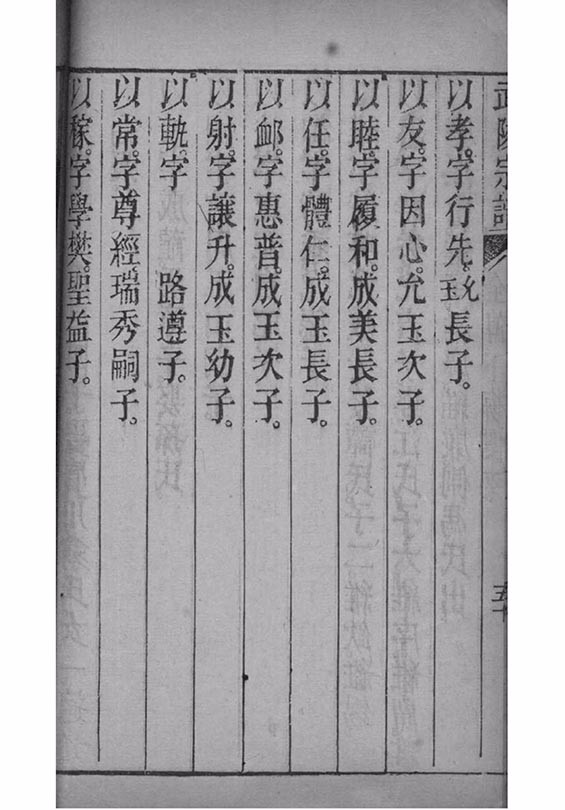 宗譜
以孝。字行先。允玉長子。
以友。字因心。允玉次子。
以睦。字履和。成美長子。
以任。字體仁。成玉長子。
以卹。字惠普。成玉次子。
以射。字讓升。成玉幼子。
以軌。字　　路遵子。
以常。字尊經。瑞秀嗣子。
以稼。字學樊。聖益子。